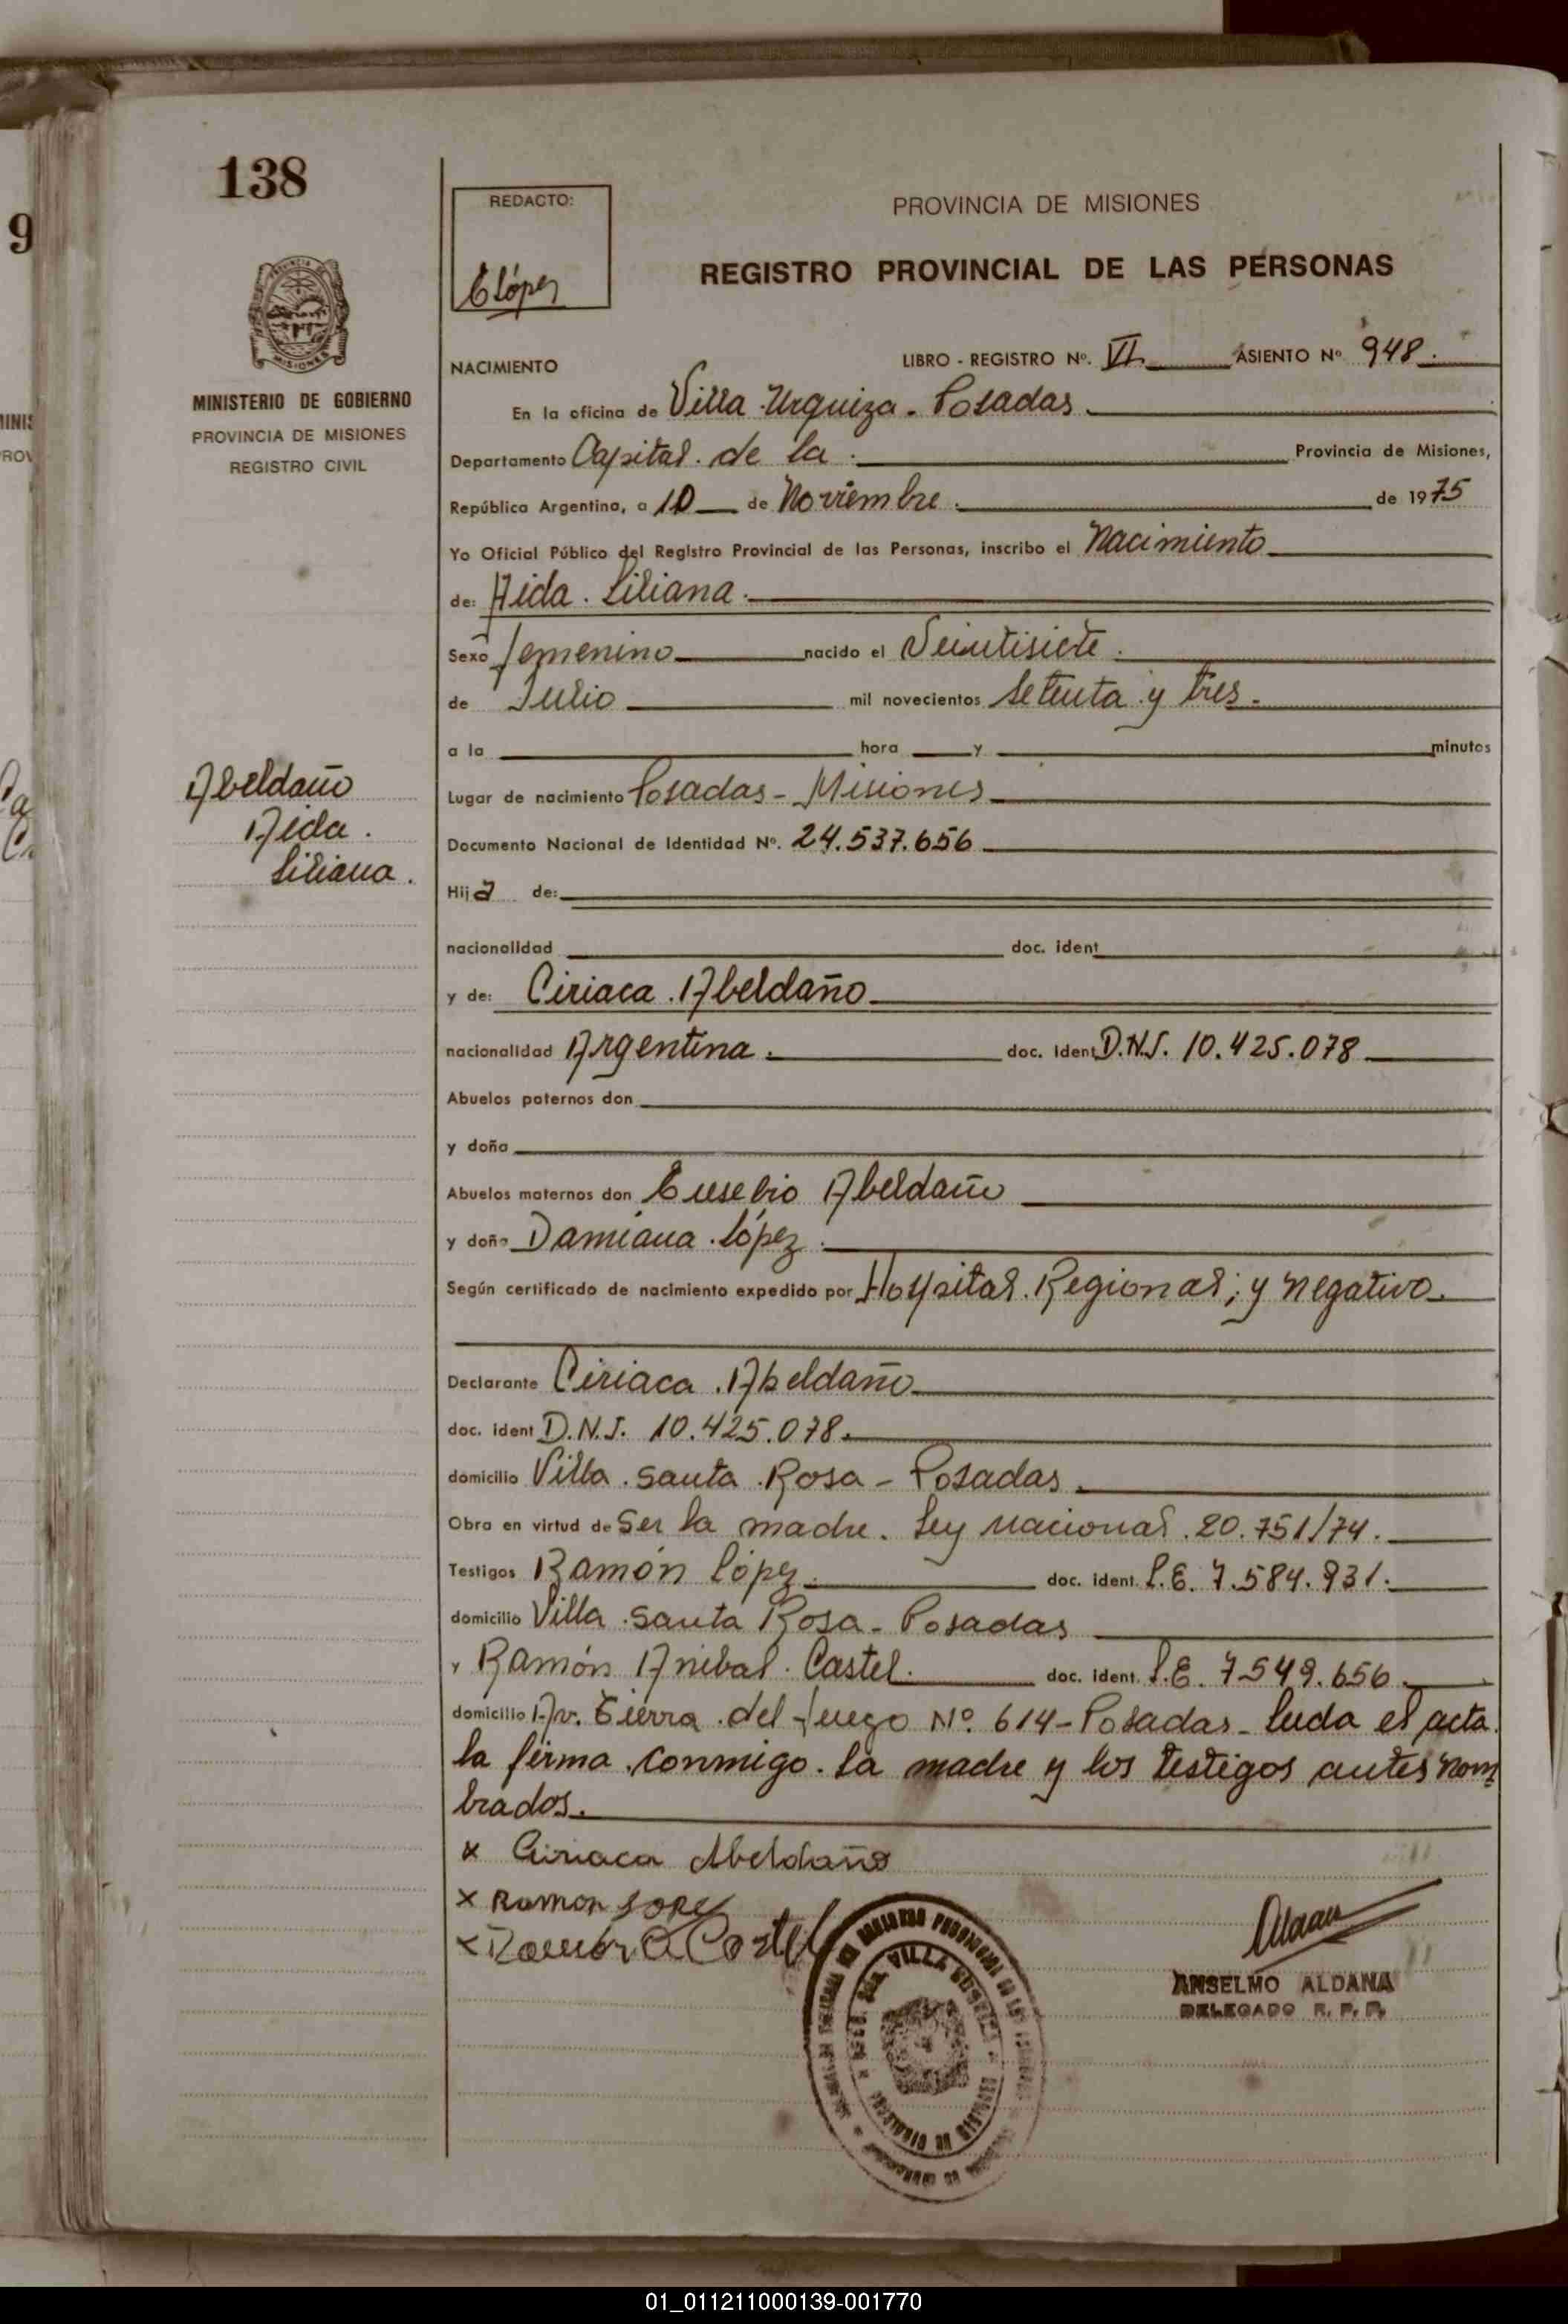 138
REDACTO:
E López
PROVINCIA DE MISIONES
REGISTRO PROVINCIAL DE LAS PERSONAS
9
MINISTERIO DE GOBIERNO
PROVINCIA DE MISIONES
REGISTRO CIVIL
NACIMIENTO LIBRO - REGISTRO Nº. VI ASIENTO Nº 948.
En la oficina de Villa Urquiza - Posadas
Departamento Capital. de la. Provincia de Misiones,
República Argentina, a 10 de Noviembre. de 1975
Yo Oficial Público del Registro Provincial de las Personas, inscribo el Nacimiento
de: Aida. Liliana.
Sexo femenino nacido el Veintisiete.
de Julio mil novecientos setenta y tres.
a la hora y minutos
Abeldaño
Aida.
Liliana.
Lugar de nacimiento Posadas - Misiones
Documento Nacional de Identidad Nº. 24.537.656
Hija de:
nacionalidad doc. ident
y de: Ciriaca. Abeldaño
nacionalidad Argentina. doc. ident D.N.I. 10.425.078
Abuelos paternos don
y doña
Abuelos maternos don Eusebio Abeldaño
y doña Damiana. López.
Según certificado de nacimiento expedido por Hospital. Regional; y negativo.
Declarante Ciriaca. Abeldaño
doc. ident D.N.I. 10.425.078.
domicilio Villa. Santa. Rosa - Posadas.
Obra en virtud de Ser la madre. Ley nacional. 20.751/74.
Testigos Ramón López. doc. ident. L.E. 7.584.931.
domicilio Villa. Santa Rosa - Posadas
y Ramón Anibal. Castel. doc. ident. L.E. 7.549.656
domicilio Av. Tierra. del fuego Nº. 614 - Posadas - Leida el acta.
la firma. conmigo. la madre y los testigos antes nom
brados.
x Ciriaca Abeldaño
x Ramon Lopez
x Ramón A Castel
ANSELMO ALDANA
DELEGADO R. P. P.
VILLA URQUIZA
01_011211000139-001770